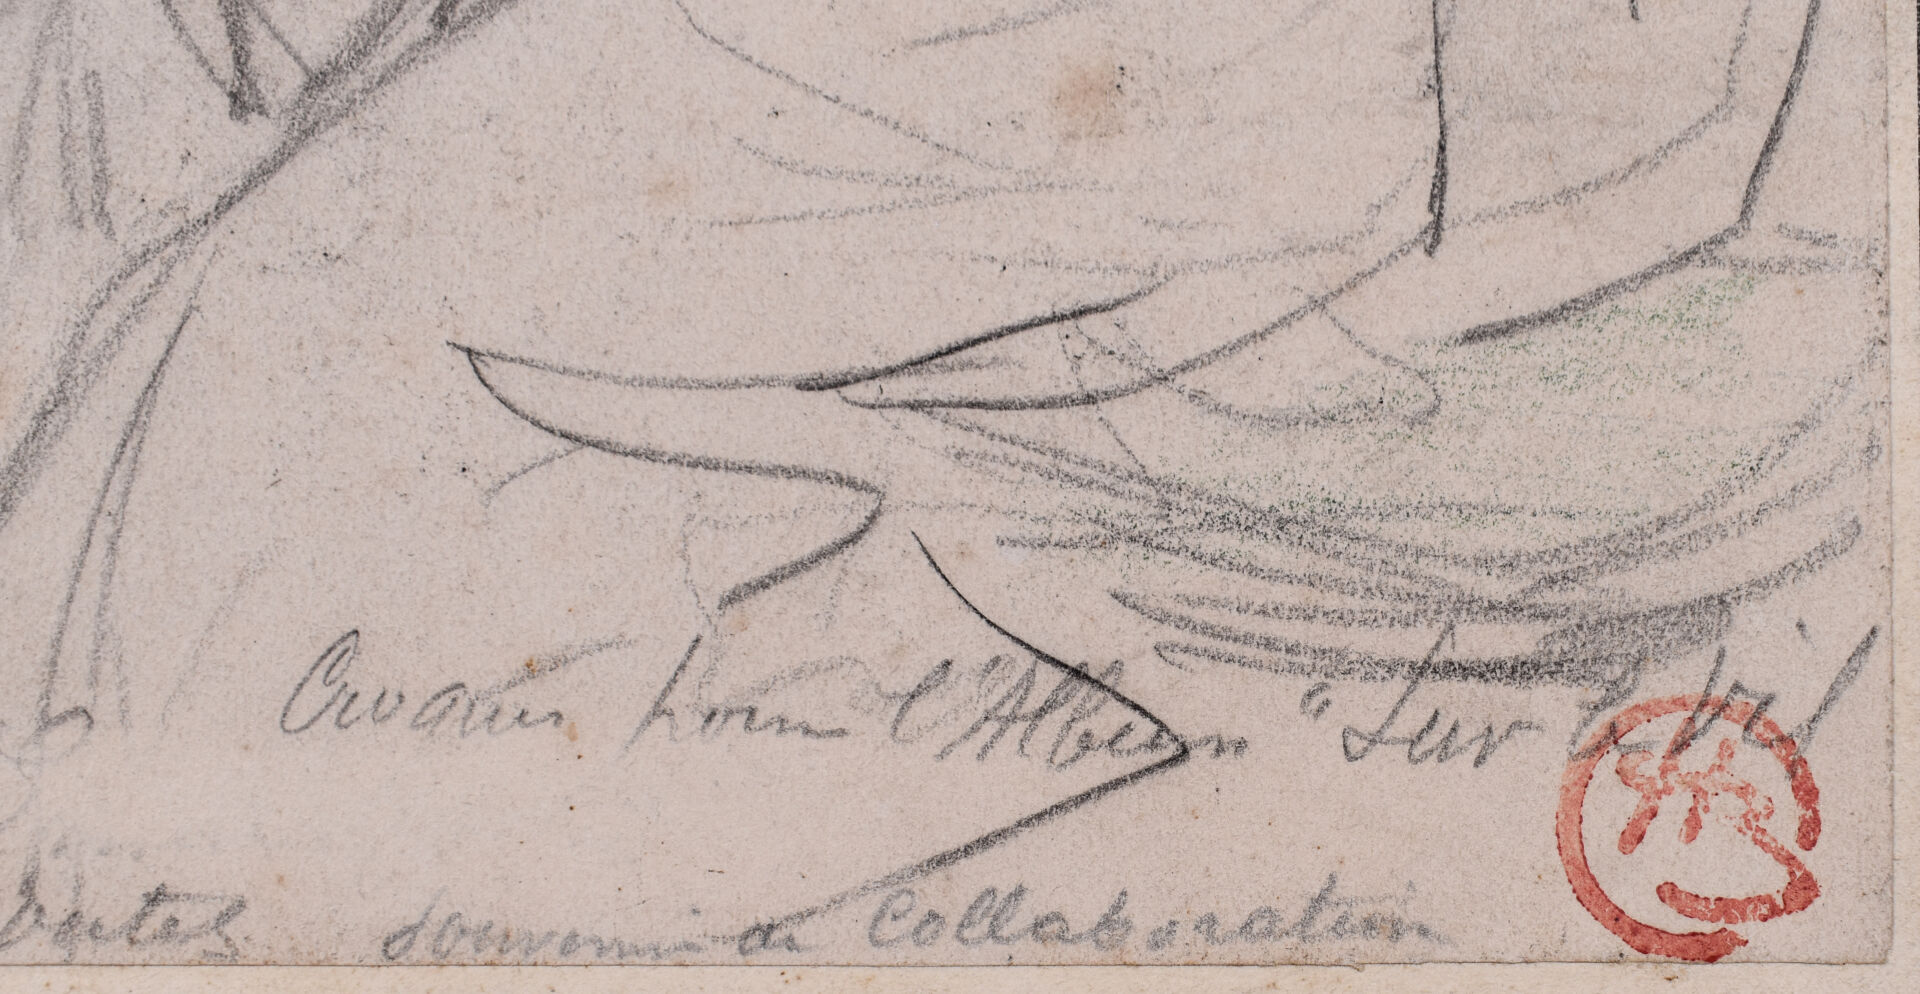 Croquis pour l'Album "Sur le vif
souvenir de Collaboration